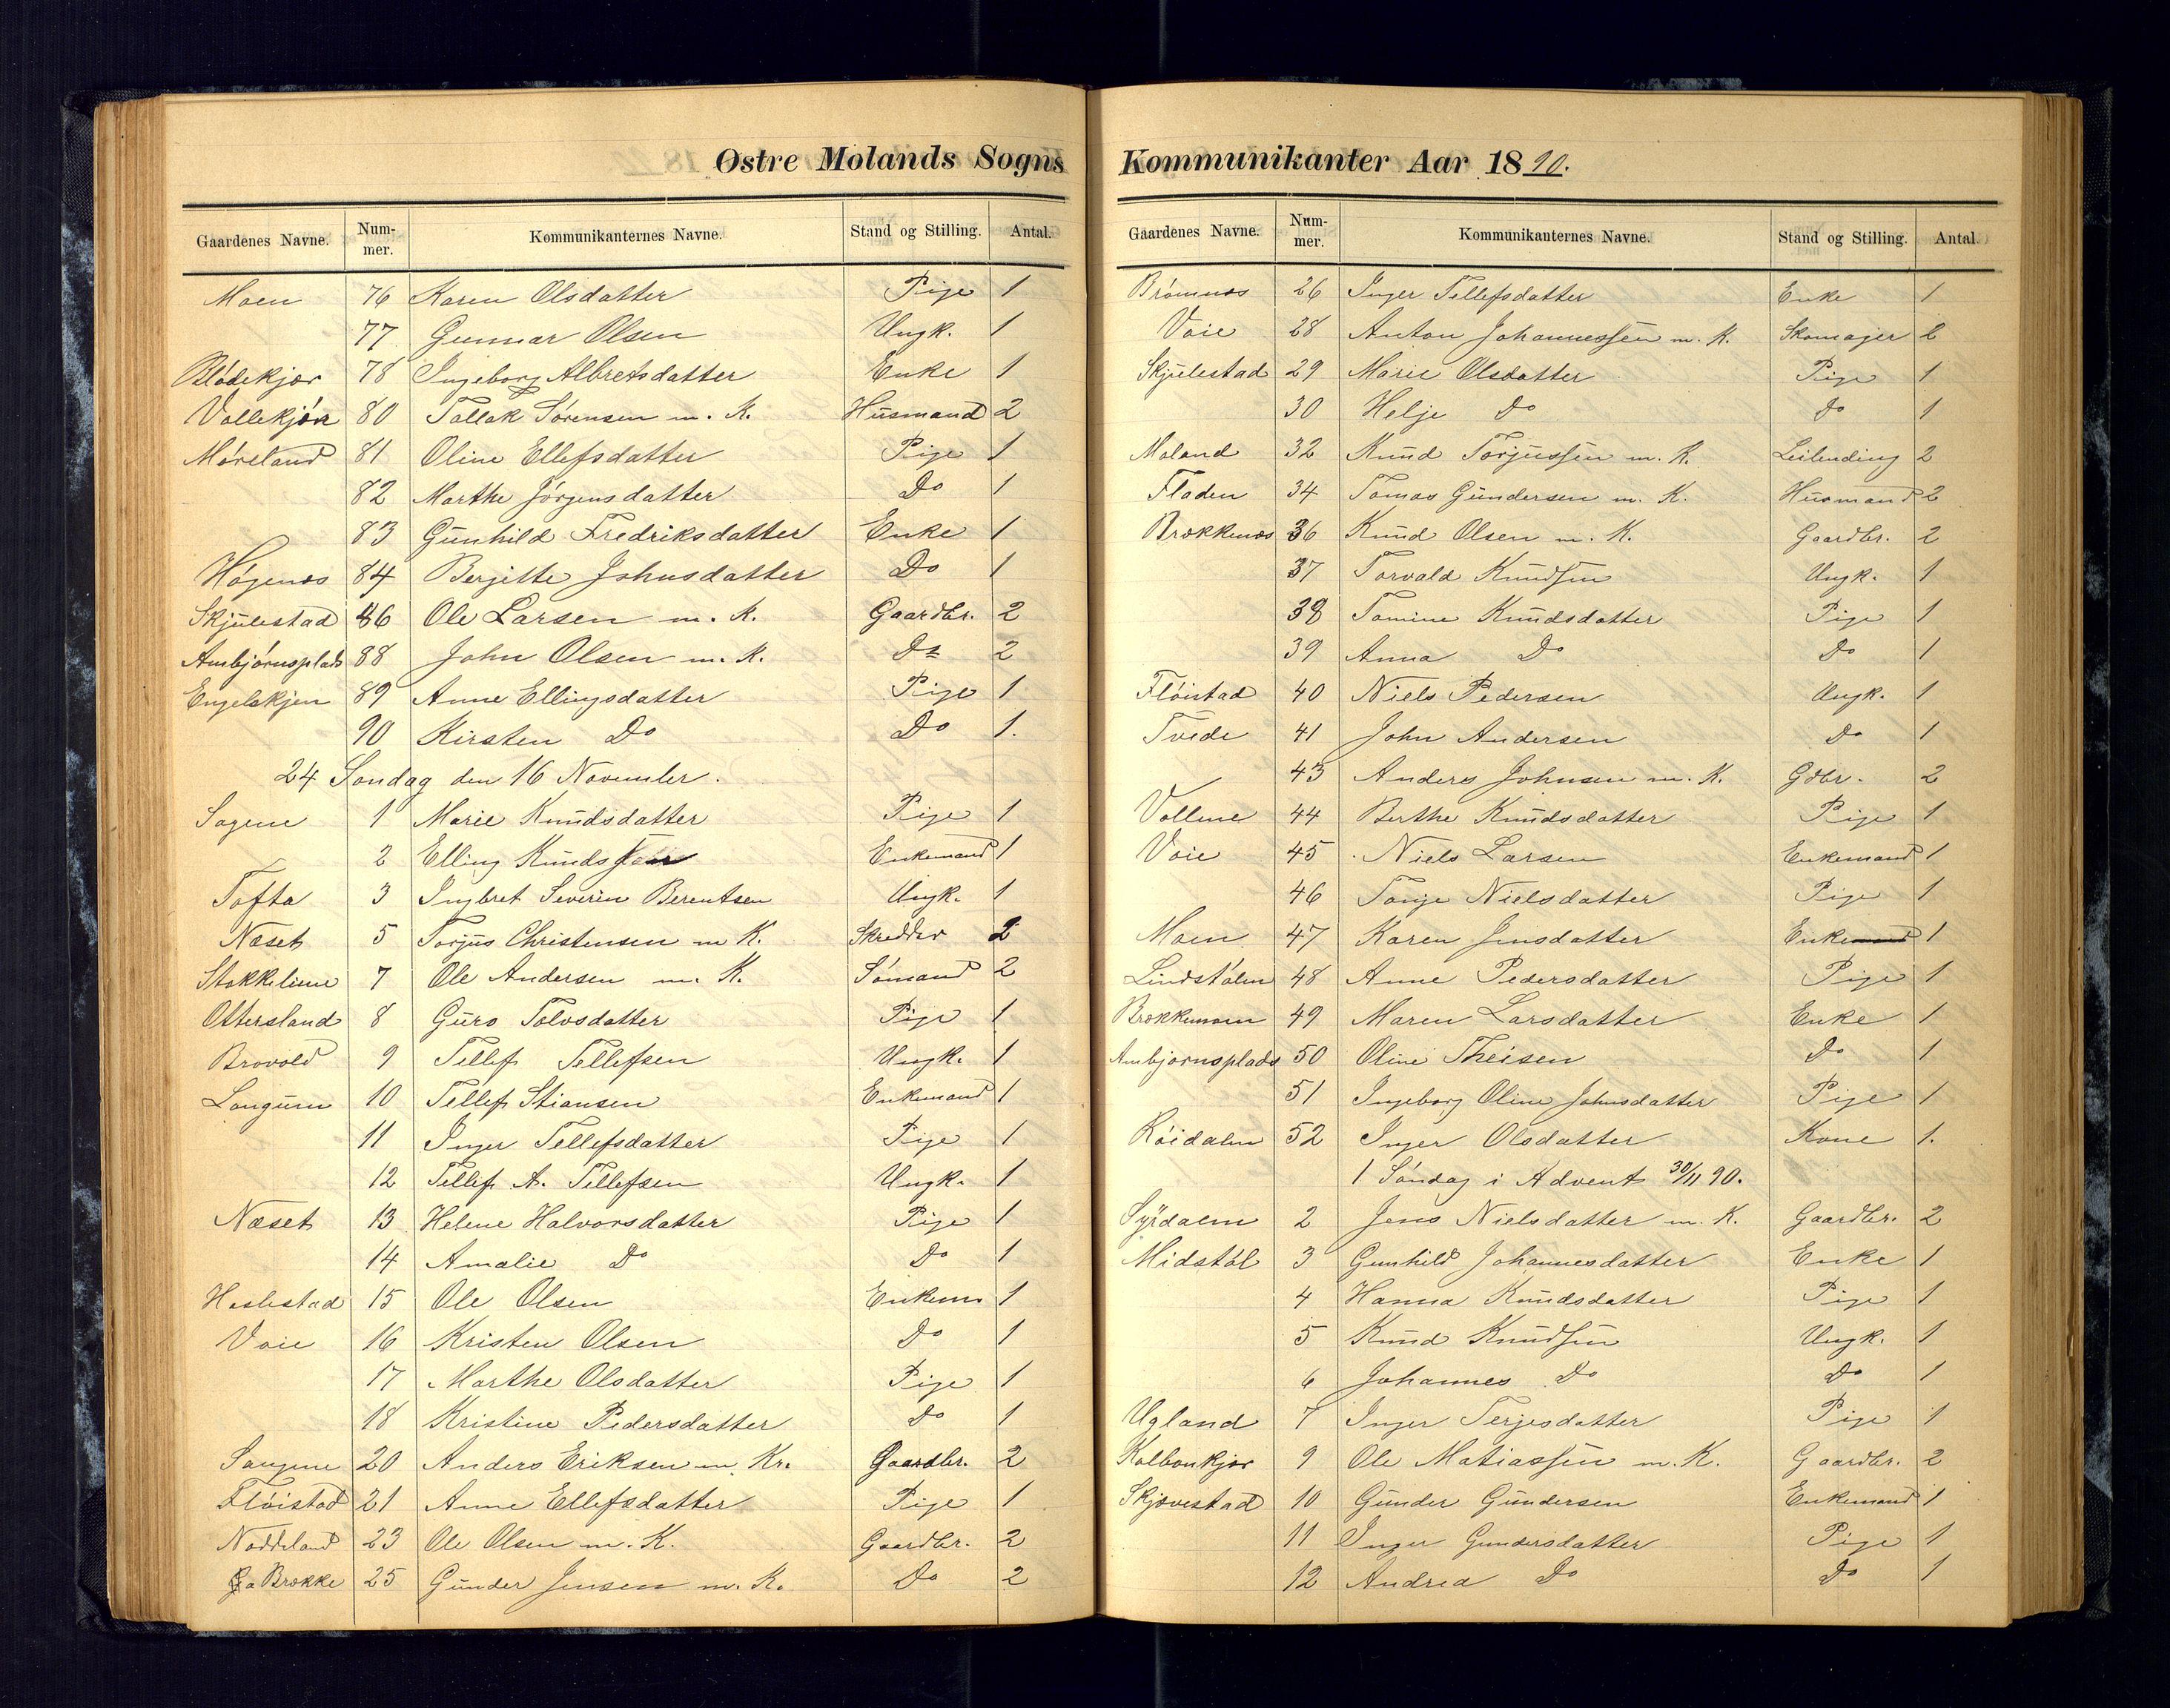 Østre Molands Sogns
Gaardenes Navne. Nummer. Kommunikanternes Navne. Stand og Stilling. Antal.
Moen 76 Karen Olsdatter Pige 1
77 Gunnar Olsen Ungk. 1
Blødekjær 78 Ingeborg Albretsdatter Enke 1
Vallekjær 80 Tallak Sørensen m. K. Husmand 2
Møreland 81 Oline Ellefsdatter Pige 1
82 Marthe Jørgensdatter Do 1
83 Gunhild Fredriksdatter Enke 1
Høgenæs 84 Berjitte Johnsdatter Do 1
Skjulestad 86 Ole Larsen m. K. Gaardbr. 2
Ambjørnsplads 88 John Olsen m. K. Do 2
Engelskjen 89 Anne Ellingsdatter Pige 1
90 Kirsten Do Do 1.
24 Søndag den 16 November.
Sagene 1 Marie Knudsdatter Pige 1
2 Elling Knudsen Enkemand 1
Tofta 3 Ingbret Severin Berentsen Ungk. 1
Næset 5 Torjus Christensen m K. Skredder 2
Stokkeliene 7 Ole Andersen m. K. Sømand 2
Ottersland 8 Guro Tolvsdatter Pige 1
Brovold 9 Tellef Tellefsen Ungk. 1
Longum 10 Tellef Stiansen Enkemand 1
11 Inger Tellefsdatter Pige 1
12 Tellef A. Tellefsen Ungk. 1
Næset 13 Helene Halvorsdatter Pige 1
14 Amalie Do Do 1
Haslestad 15 Ole Olsen Enkem 1
Voie 16 Kristen Olsen Do 1
17 Marthe Olsdatter Pige 1
18 Kristine Pedersdatter Do 1
Saugene 20 Anders Eriksen m Kr. Gaardbr. 2
Fløistad 21 Anne Ellefsdatter Pige 1
Noddeland 23 Ole Olsen m. K. Gaardbr. 2
Brække 25 Gunder Jensen m. K. Do 2
Kommunikanter Aar 1890.
Gaardenes Navne. Nummer. Kommunikanternes Navne. Stand og Stilling. Antal.
Brømnes 26 Inger Tellefsdatter Enke 1
Voie 28 Anton Johannessen m. K. Skomager 2
Skjulestad 29 Marie Olsdatter Pige 1
30 Helje Do Do 1
Moland 32 Knud Torjussen m. K. Leilending 2
Fladen 34 Tomas Gundersen m. K. Husmand 2
Brækkenæs 36 Knud Olsen m. K. Gaardbr. 2
37 Torvald Knudsen Ungk. 1
38 Tomine Knudsdatter Pige 1
39 Anna Do Do 1
Fløistad 40 Niels Pedersen Ungk. 1
Tvede 41 John Andersen Do 1
43 Anders Johnsen m. K. Gdbr. 2
Vollene 44 Berthe Knudsdatter Pige 1
Voie 45 Niels Larsen Enkemand 1
46 Tonje Nielsdatter Pige 1
Moen 47 Karen Jensdatter Enke 1
Lindstølen 48 Anne Pedersdatter Pige 1
Brækkemoen 49 Maren Larsdatter Enke 1
Ambjornsplads 50 Oline Theisen Do 1
51 Ingeborg Oline Johnsdatter Pige 1
Røidalen 52 Inger Olsdatter Kone 1.
1 Søndag i Advent 30/11 90.
Syrdalen 2 Jens Nielsdatter m. K. Gaardbr. 2
Midstøl 3 Gunhild Johannesdatter Enke 1
4 Hanna Knudsdatter Pige 1
5 Knud Knudsen Ungk. 1
6 Johannes Do Do 1
Ugland 7 Inger Terjesdatter Pige 1
Kalbonkjær 9 Ole Matiassen m. K. Gaardbr. 2
Skjævestad 10 Gunder Gundersen Enkemand 1
11 Inger Gundersdatter Pige 1
12 Andrea Do Do 1